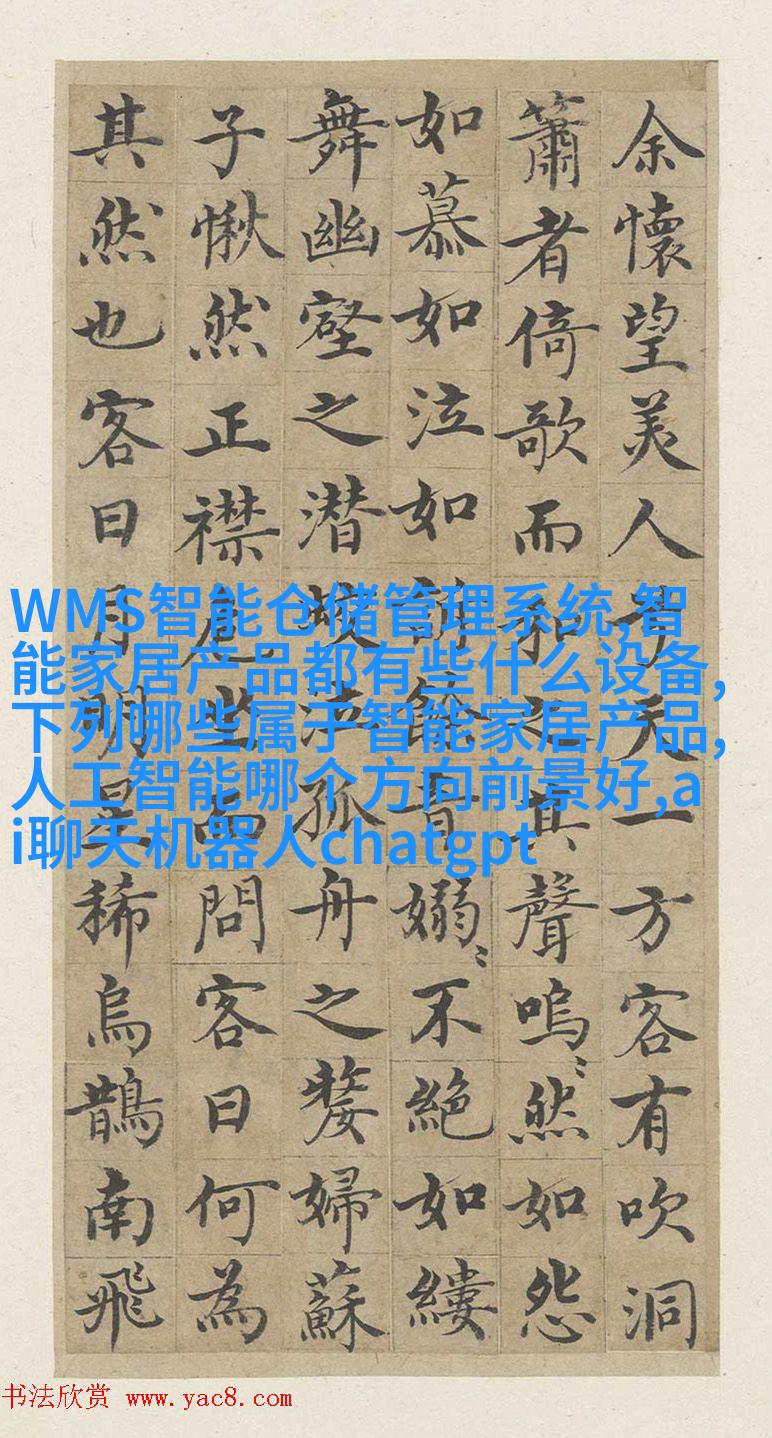 余懷望美人兮天一方客有吹洞
簫者倚歌而和之其聲嗚〻然如怨
如慕如泣如訴餘音嫋〻不絕如縷
舞幽壑之潛蛟泣孤舟之嫠婦蘇
子愀然正襟危坐而問客曰何為
其然也客曰月明星稀烏鵲南飛
WMS智能仓储管理系统,智
能家居产品都有些什么设备,
下列哪些属于智能家居产品,
人工智能哪个方向前景好,a
i聊天机器人chatgpt
书法欣赏 www.yac8.com